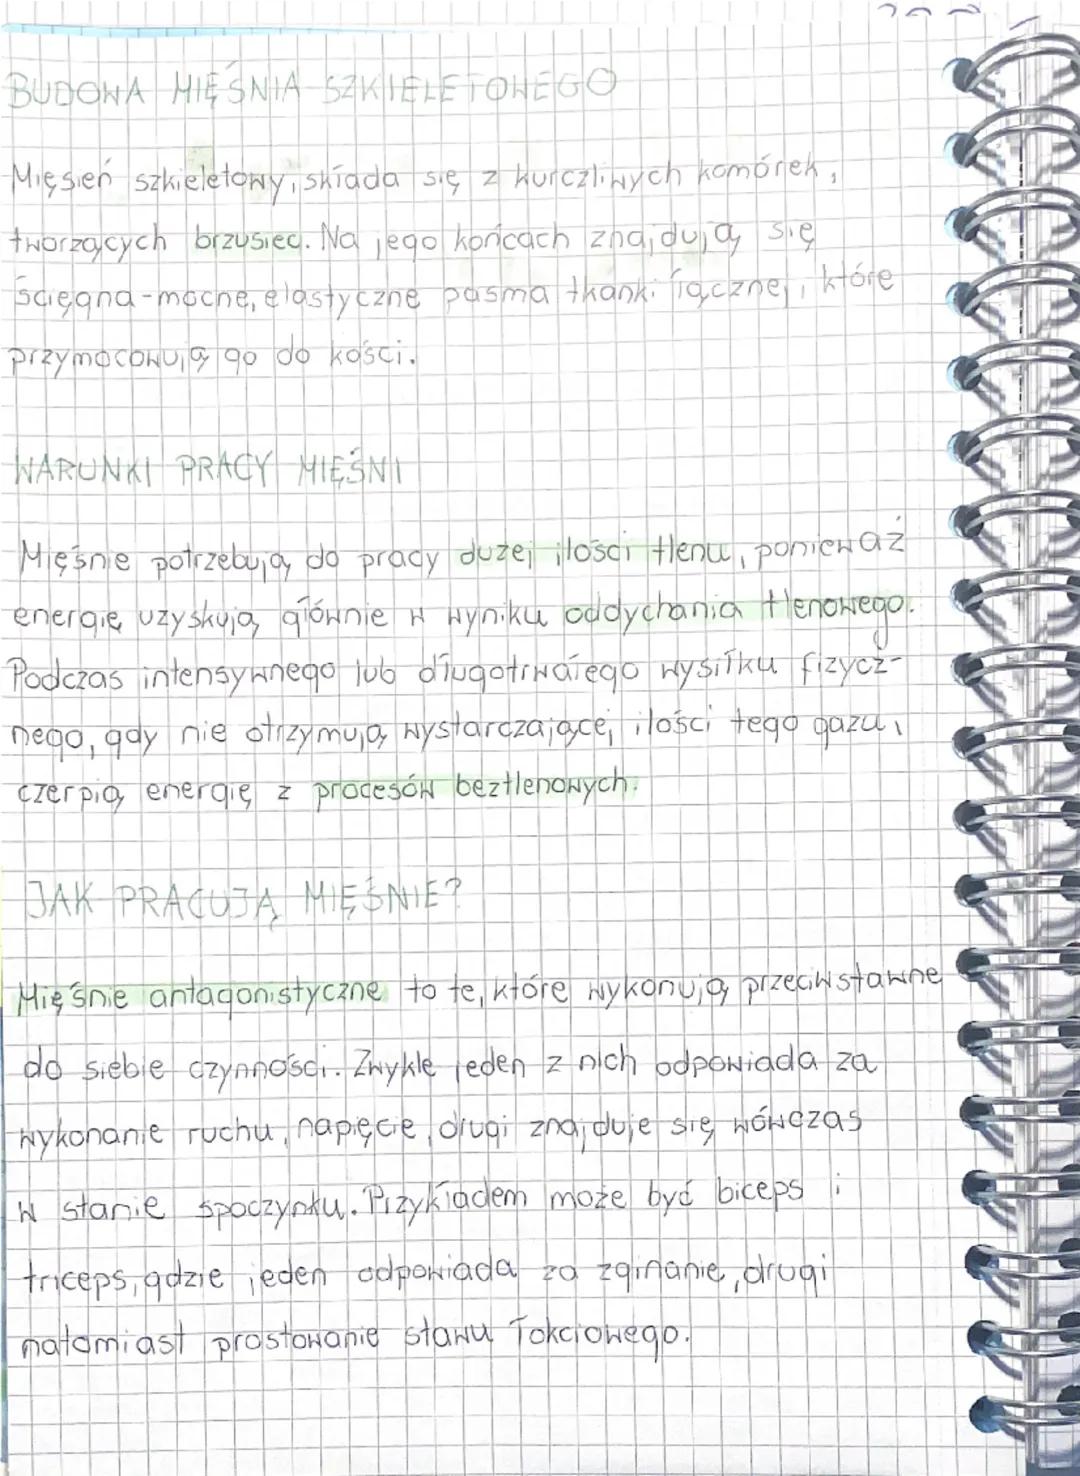 BUDOWA MIĘŚNIA SZKIELETOWEGO
Mięsień szkieletowy, składa się z kurczliwych komórek,
tworzących brzusiec. Na jego końcach znajdują się
ścięgna - mocne, elastyczne pasma tkanki łącznej, które
przymocowują go do kości.
WARUNKI PRACY MIĘŚNI
Mięśnie potrzebują do pracy dużej ilości tlenu, ponieważ
energię uzyskują głównie w wyniku oddychania tlenowego.
Podczas intensywnego lub długotrwałego wysiłku fizycz-
nego, gdy nie otrzymują wystarczającej ilości tego gazu,
czerpią energię z procesów beztlenowych.
JAK PRACUJĄ MIĘŚNIE?
Mięśnie antagonistyczne to te, które wykonują przeciwstawne
do siebie czynności. Zwykle jeden z nich odpowiada za
wykonanie ruchu, napięcie, drugi znajduje się wówczas
w stanie spoczynku. Przykładem może być biceps i
triceps, gdzie jeden odpowiada za zginanie, drugi
natomiast prostowanie stawu łokciowego.